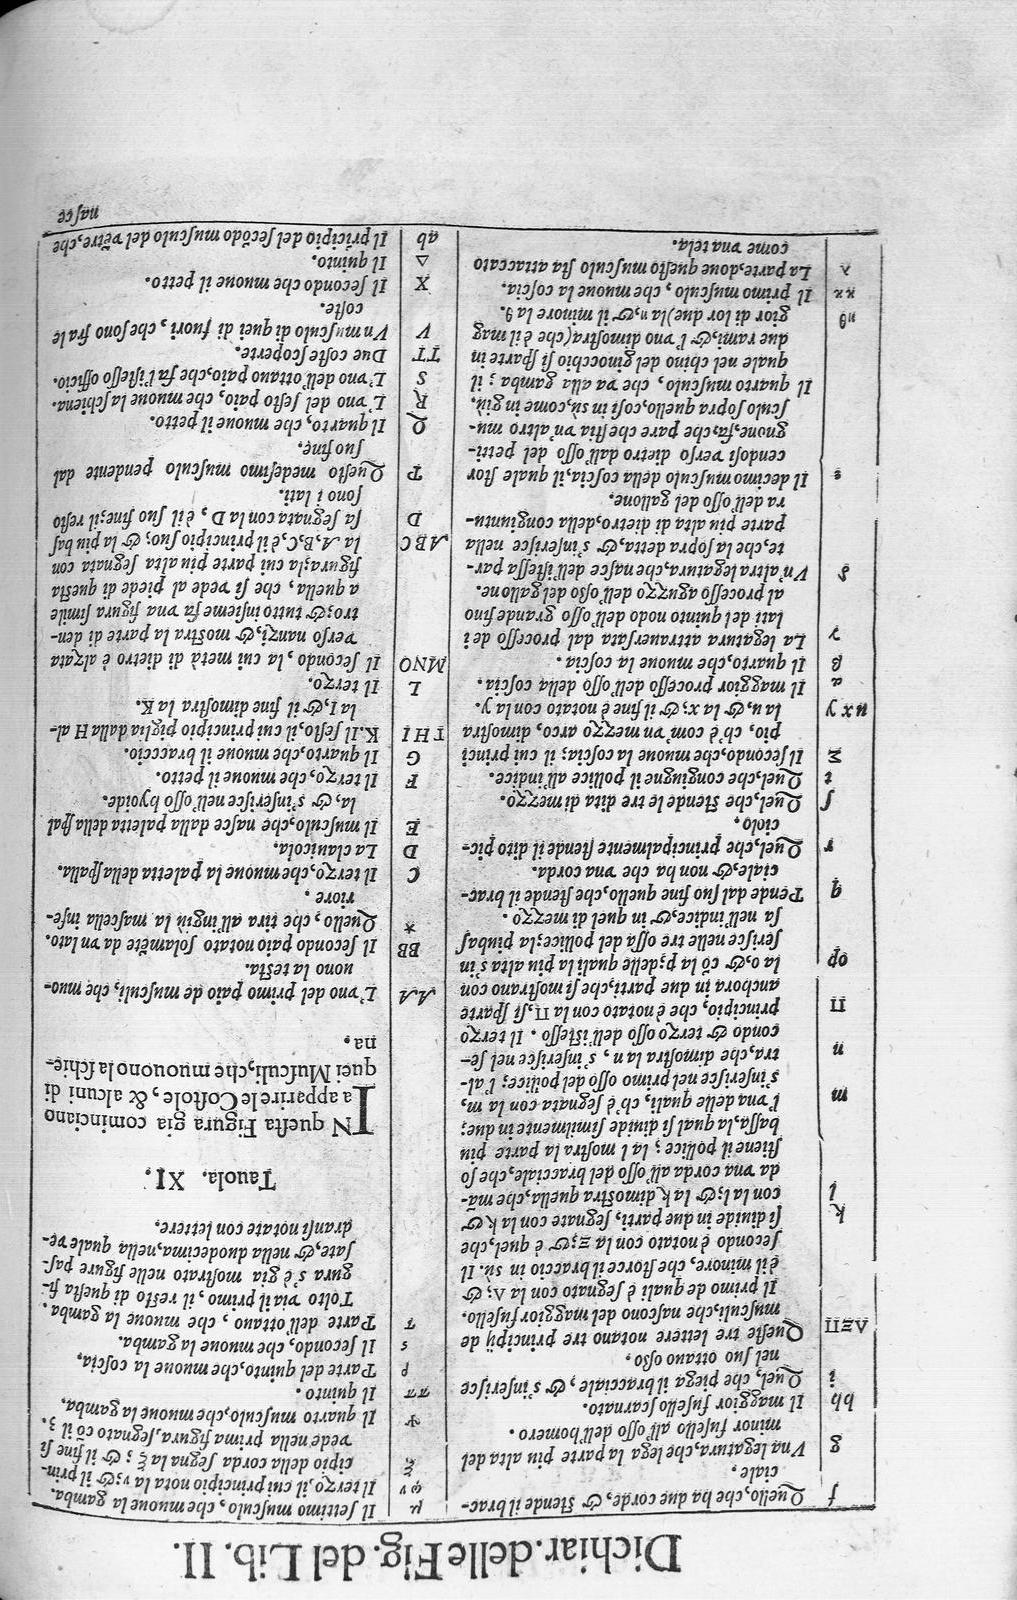 Dichiar. delle Fig. del Lib. II.
f Quello, che ha due corde, & stende il brac-
ciale,
g Vna legatura, che lega la parte piu alta del
minor fusello all'osso dell'homero.
hh Il maggior fusello scarnato.
i Quel, che piega il bracciale, & s'inserisce
nel suo ottauo osso,
ΛΞΠ Queste tre lettere notano tre principij di
musculi, che nascono del maggior fusello.
Il primo de quali è segnato con la Λ; &
è il minore, che storce il braccio in sù. Il
secondo è notato con la Ξ; & è quel, che
si diuide in due parti, segnate con la k &
k con la l; & la k dimostra quella, che mã-
l da vna corda all'osso del bracciale, che so
stiene il pollice; la l mostra la parte piu
bassa, la qual si diuide similmente in due;
m l'vna delle quali, ch'è segnata con la m,
s'inserisce nel primo osso del pollice; l'al-
n tra, che dimostra la n, s'inserisce nel se-
condo & terzo osso dell'istesso. Il terzo
Π principio, che è notato con la Π, si sparte
anchora in due parti, che si mostrano con
op la o, & cõ la p; delle quali la piu alta s'in
serisce nelle tre ossa del pollice; la piu bas
sa nell'indice, & in quel di mezzo.
q Pende dal suo fine quello, che stende il brac-
ciale, & non ha che vna corda.
r Quel, che principalmente stende il dito pic-
ciolo,
ſ Quel, che stende le tre dita di mezzo.
t Quel, che congiugne il pollice all'indice.
Σ Il secondo, che muoue la coscia; il cui princi
pio, ch'è com'vn mezzo arco, dimostra
u x y la u, & la x; & il fine è notato con la y.
α Il maggior processo dell'osso della coscia.
β Il quarto, che muoue la coscia.
γ La legatura attrauersata dal processo de i
lati del quinto nodo dell'osso grande fino
al processo aguzzo dell'osso del gallone.
δ Vn'altra legatura, che nasce dell'istessa par-
te, che la sopra detta, & s'inserisce nella
parte piu alta di dietro, della congiuntu-
ra dell'osso del gallone.
ε Il decimo musculo della coscia, il quale stor
cendosi verso dietro dall'osso del petti-
gnone, fa, che pare che stia vn'altro mu-
sculo sopra quello, cosi in sù, come in giù.
Il quarto musculo, che va alla gamba; il
quale nel chino del ginocchio si sparte in
due rami, & l'vno dimostra (che è il mag
ηθ gior di lor due) la η, & il minore la θ.
κκ Il primo musculo, che muoue la coscia.
λ La parte, doue questo musculo sta attaccato
come vna tela.
μ Il settimo musculo, che muoue la gamba.
φν Il terzo, il cui principio nota la ν; & il prin-
ξ cipio della corda segna la ξ; & il fine si
vede nella prima figura, segnato cõ il 3.
Ψ Il quarto musculo, che muoue la gamba.
ππ Il quinto.
ρ Parte del quinto, che muoue la coscia,
s Il secondo, che muoue la gamba.
τ Parte dell'ottauo, che muoue la gamba.
Tolto via il primo, il resto di questa fi-
gura s'è gia mostrato nelle figure pas-
sate, & nella duodecima, nella quale ve-
dransi notate con lettere.
Tauola. XI.
IN questa Figura gia cominciano
a apparire le Costole, & alcuni di
quei Musculi, che muouono la schie-
na.
AA L'vno del primo paio de musculi, che muo-
uono la testa.
BB Il secondo paio notato solamẽte da vn lato.
* Quello, che tira all'ingiù la mascella infe-
riore.
C Il terzo, che muoue la paletta della spalla.
D La clauicola.
E Il musculo, che nasce dalla paletta della spal
la, & s'inserisce nell'osso hyoide.
F Il terzo, che muoue il petto.
G Il quarto, che muoue il braccio.
T H I K. Il sesto, il cui principio piglia dalla H al-
la I, & il fine dimostra la K.
L Il terzo.
MNO Il secondo, la cui metà di dietro è alzata
verso nanzi, & mostra la parte di den-
tro; & tutto insieme fa vna figura simile
a quella, che si vede al piede di questa
figura; la cui parte piu alta segnata con
ABC la A, B, C, è il principio suo; & la piu bas
D sa segnata con la D, è il suo fine; il resto
sono i lati.
P Questo medesimo musculo pendente dal
suo fine,
Q Il quarto, che muoue il petto.
R L'vno del sesto paio, che muoue la schiena.
S L'vno dell'ottauo paio, che fa l'istesso officio.
TT Due coste scoperte.
V Vn musculo di quei di fuori, che sono fra le
coste.
X Il secondo che muoue il petto.
Δ Il quinto.
ab Il prĩcipio del secõdo musculo del vẽtre, che
nasce